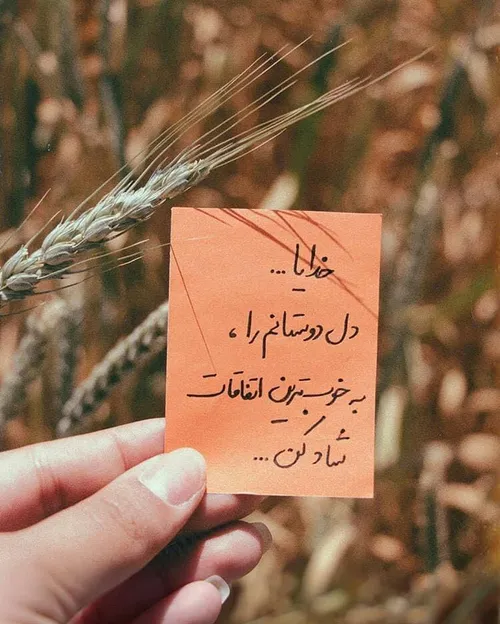 خدایا...
دل دوستانم را،
به خوب‌ترین اتفاقات
شاد کن...